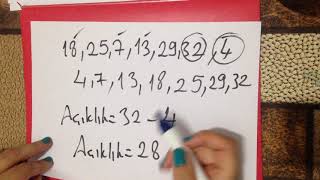 18, 25, 7, 13, 29, 32, 4
4, 7, 13, 18, 25, 29, 32
Açıklık = 32 - 4
Açıklık = 28